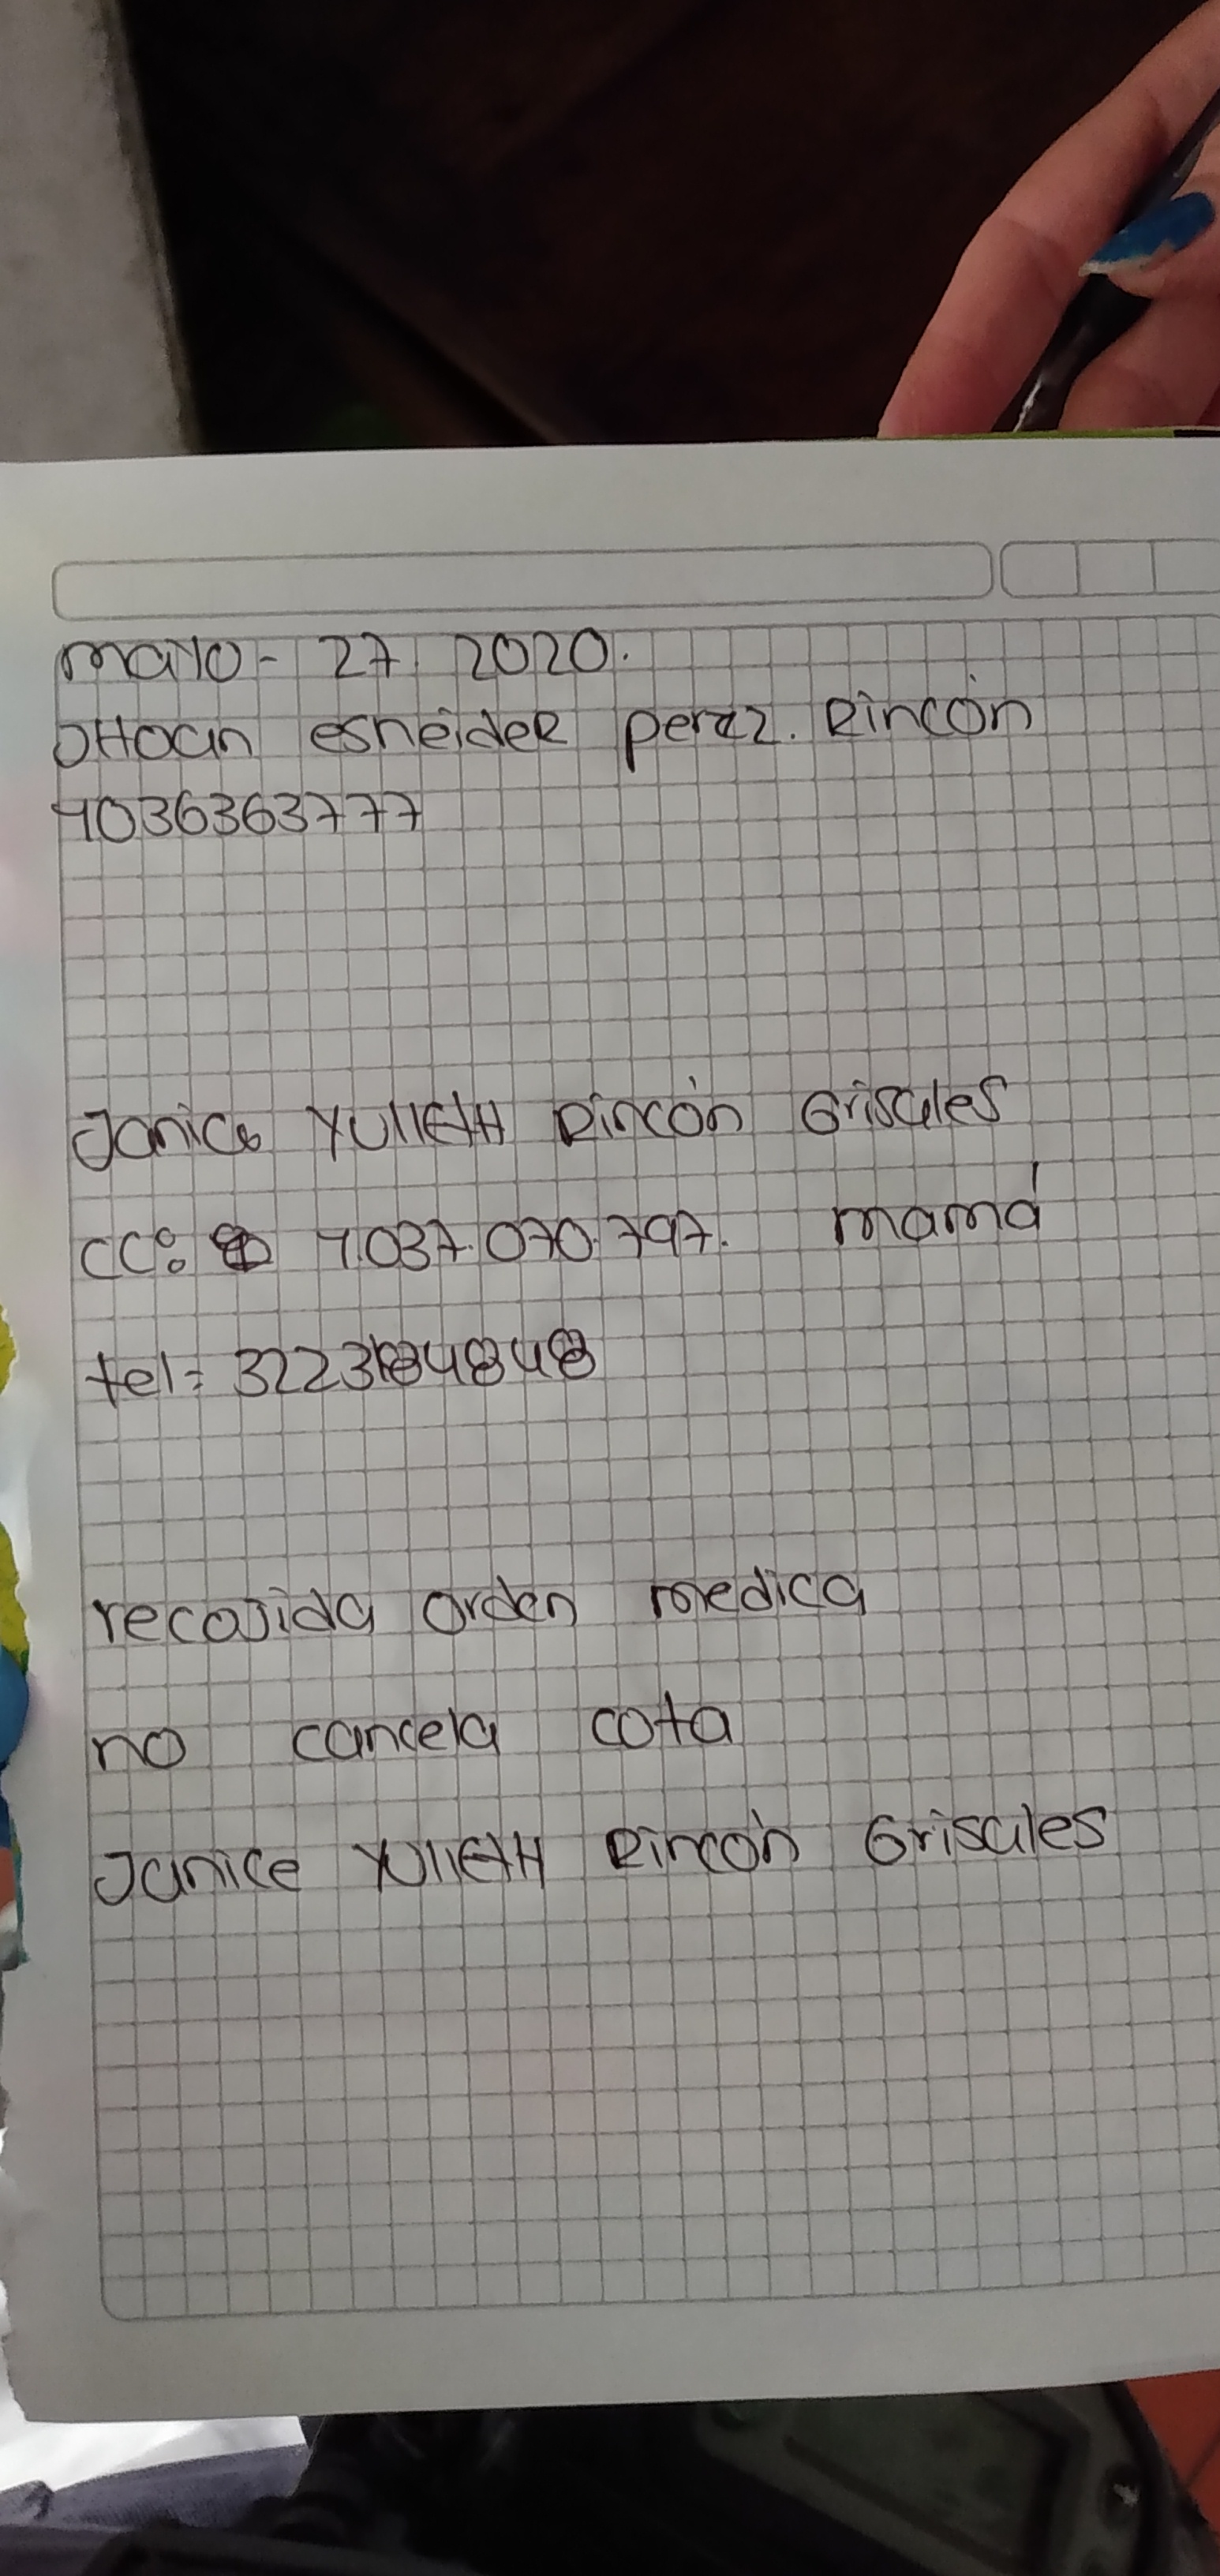 mayo - 27 2020.
JHoan esneider perez. Rincón
1036363777
Janice YulietH Rincón Grisales
CC: 1.037.070.797. mamá
tel=
recojida orden medica
no cancela cota
Janice YulietH Rincón Grisales